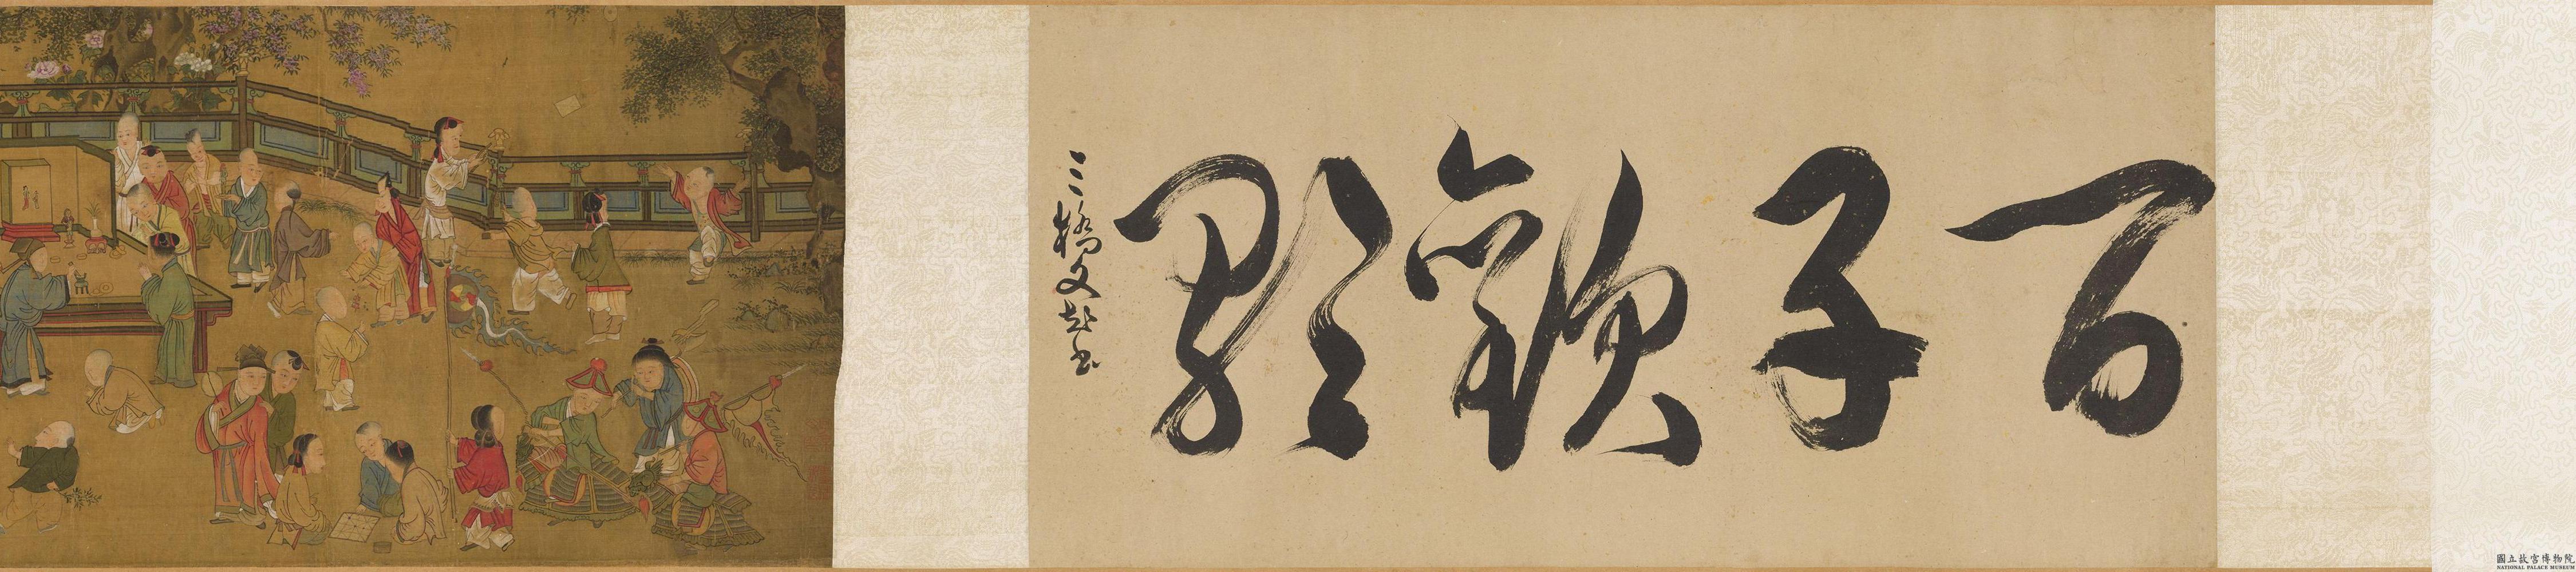 百子歡歌
三橋文彭書
國立故宮博物院
NATIONAL PALACE MUSEUM